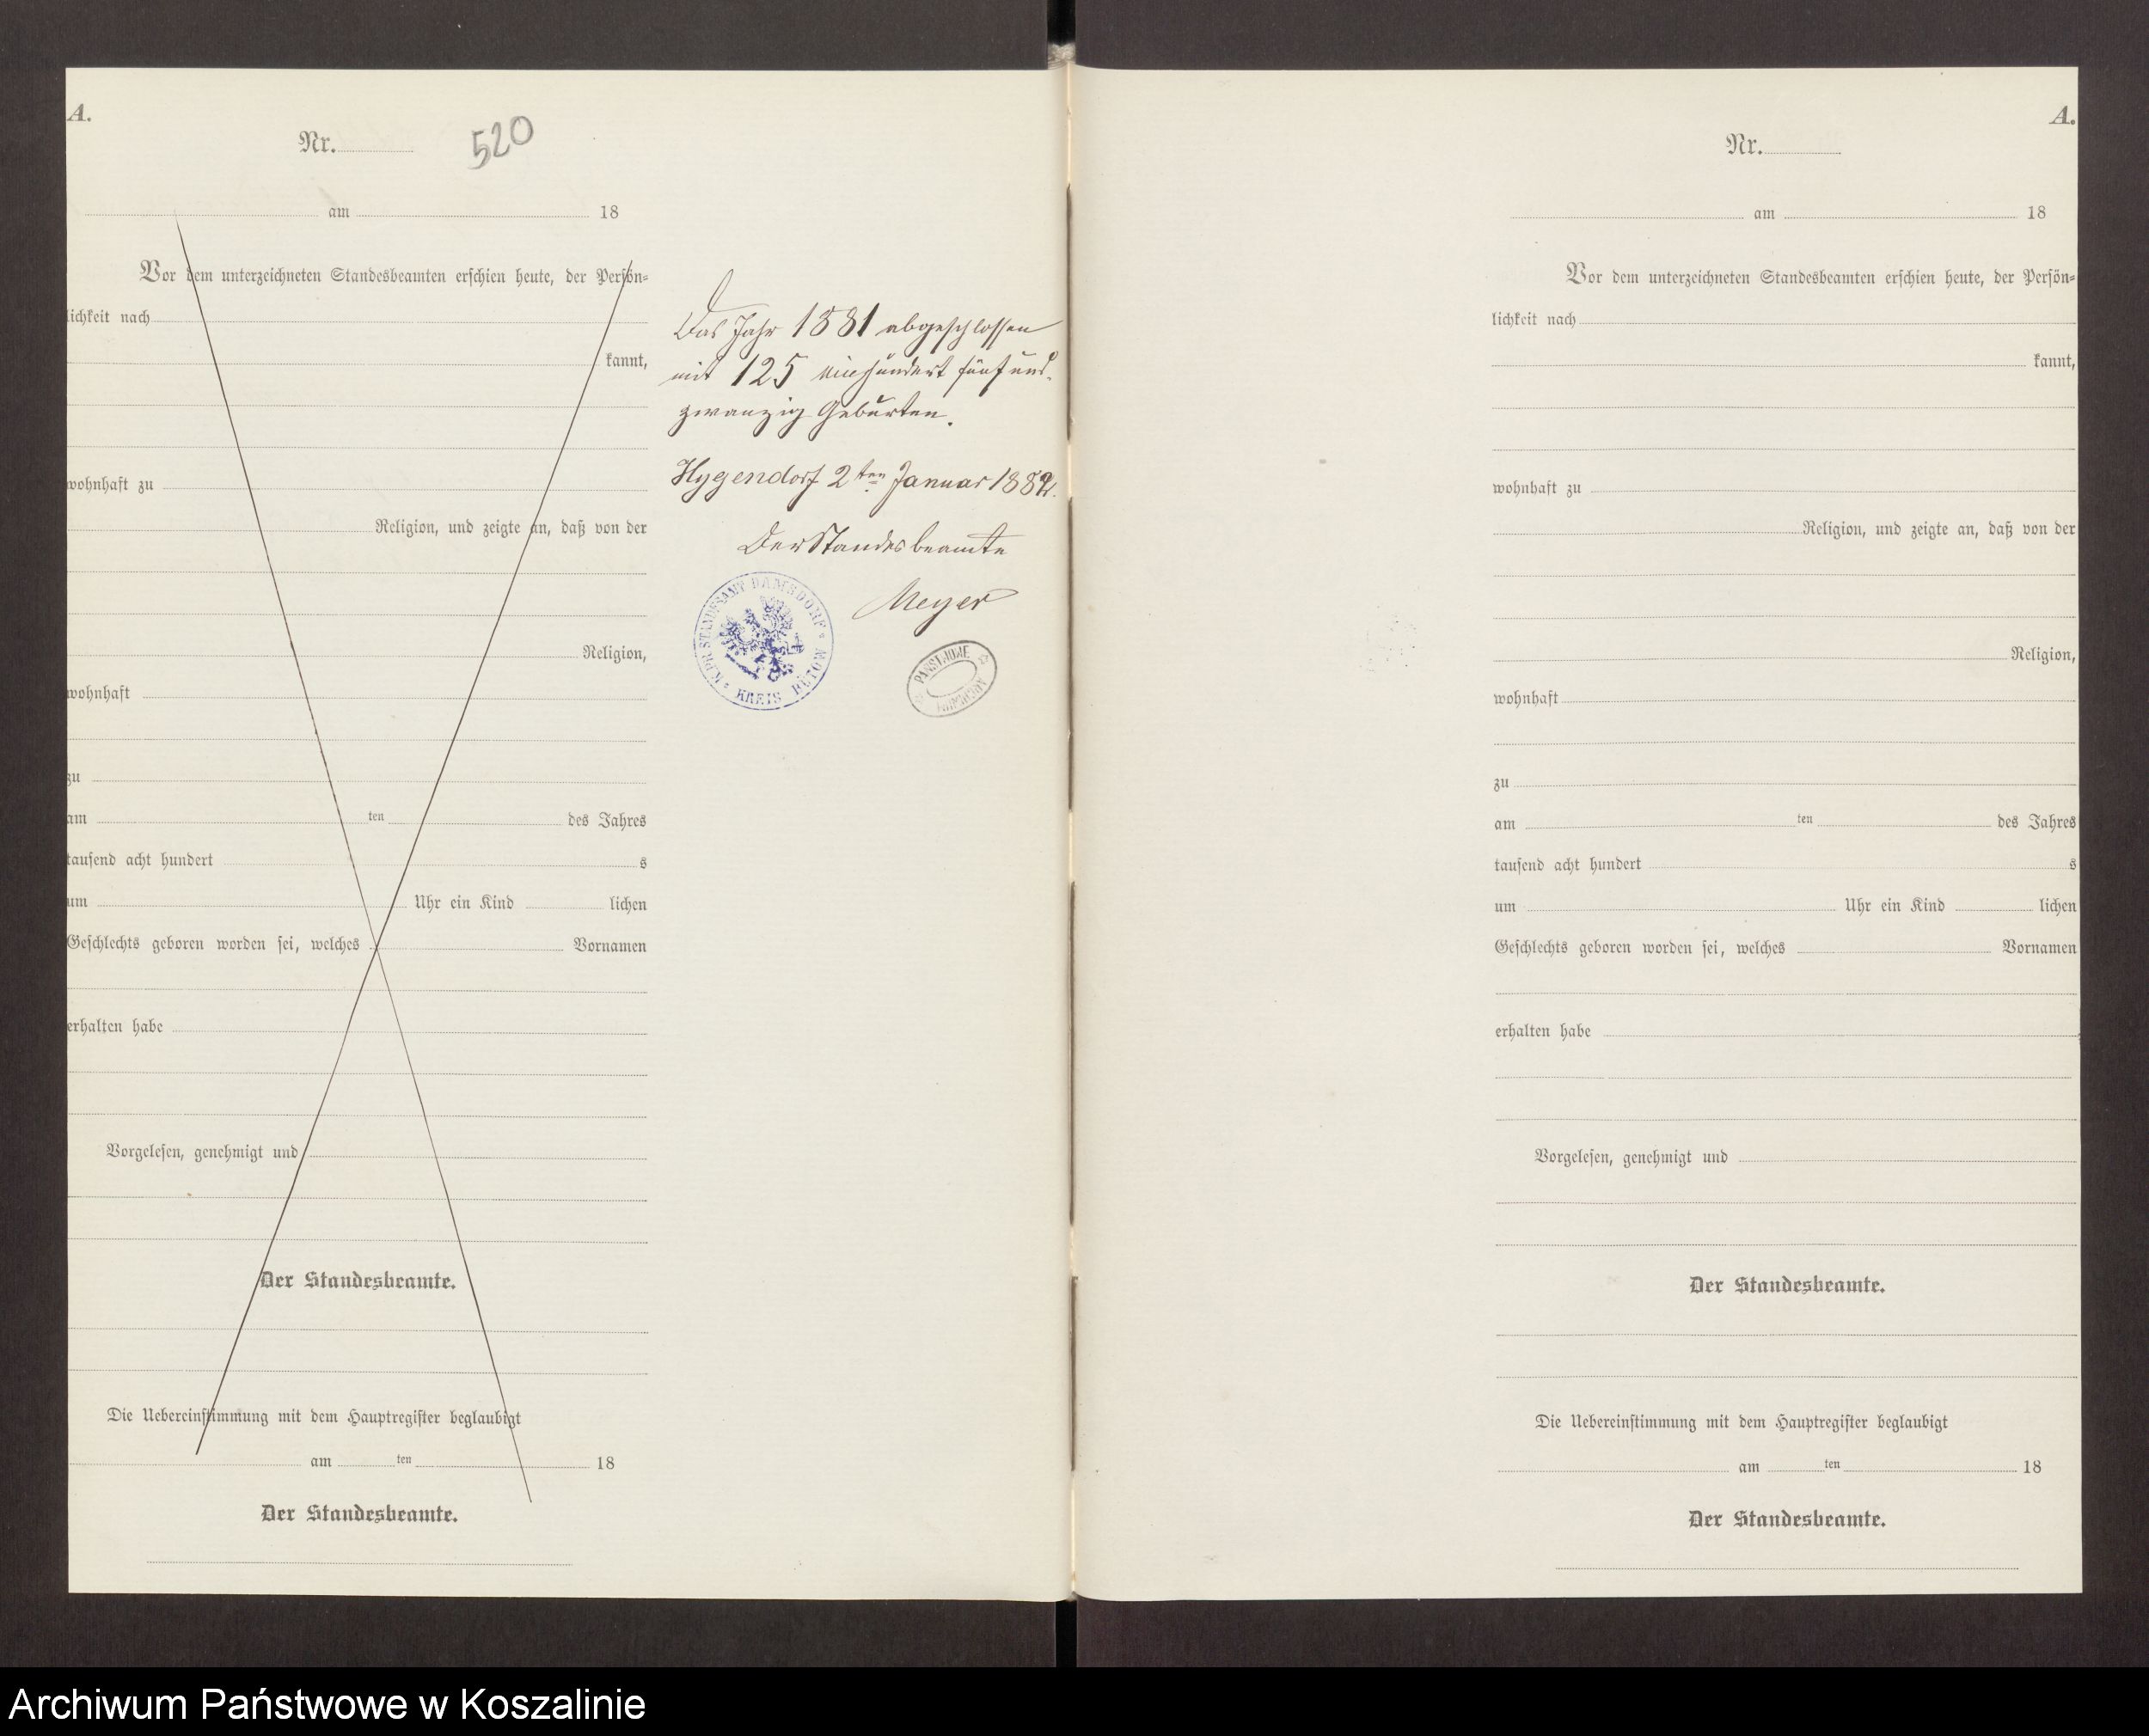 A.
Nr.
520
am 18
Vor dem unterzeichneten Standesbeamten erschien heute, der Persön-
lichkeit nach
kannt,
wohnhaft zu
Religion, und zeigte an, daß von der
Religion,
wohnhaft
zu
am ten des Jahres
tausend acht hundert s
um Uhr ein Kind lichen
Geschlechts geboren worden sei, welches Vornamen
erhalten habe
Vorgelesen, genehmigt und
Der Standesbeamte.
Die Uebereinstimmung mit dem Hauptregister beglaubigt
am ten 18
Der Standesbeamte.
Das Jahr 1881 abgeschlossen
mit 125 einhundert fünf und-
zwanzig Geburten.
Hygendorf 2ten Januar 1882.
Der Standesbeamte
Meyer
K. PR. STANDESAMT DAMSDORF * KREIS BÜTOW
PAŃSTWOWE ARCHIWUM
A.
Nr.
am 18
Vor dem unterzeichneten Standesbeamten erschien heute, der Persön-
lichkeit nach
kannt,
wohnhaft zu
Religion, und zeigte an, daß von der
Religion,
wohnhaft
zu
am ten des Jahres
tausend acht hundert s
um Uhr ein Kind lichen
Geschlechts geboren worden sei, welches Vornamen
erhalten habe
Vorgelesen, genehmigt und
Der Standesbeamte.
Die Uebereinstimmung mit dem Hauptregister beglaubigt
am ten 18
Der Standesbeamte.
Archiwum Państwowe w Koszalinie